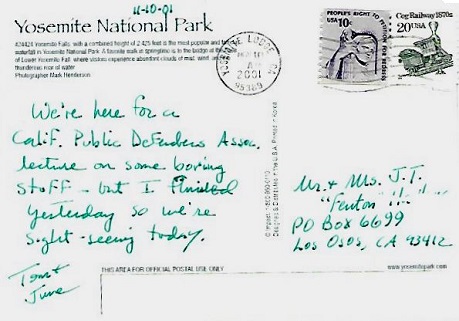 11-10-01
Yosemite National Park
Yosemite Falls, with a combined height of 2,425 feet is the most popular and
waterfall in Yosemite National Park. A favorite walk in springtime is to the bridge at the
of Lower Yosemite Fall, where visitors experience abundant clouds of mist, wind
thunderous roar of water
Photographer Mark Henderson
YOSEMITE LODGE, CA
2001
95389
PEOPLE'S RIGHT TO PETITION FOR REDRESS
USA 10c
Cog Railway 1870s
20 USA
We're here for a
Calif. Public Defenders Assoc.
lecture on some boring
stuff - but I finished
yesterday so we're
sight-seeing today.
Tom +
June
Mr. + Mrs. J.T.
"Fenton
PO Box 6699
Los Osos, CA 93412
THIS AREA FOR OFFICIAL POSTAL USE ONLY
www.yosemitepark.com